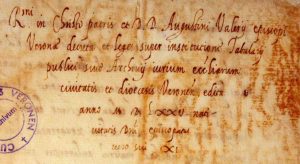 Rmi in Christo patris et D. D. Augustini Valerij episcopi
Veronæ decreta et leges super institutione Tabularij
publici sive Archivij iurium ecclesiarum
civitatis et diocesis Veronen. edita
anno M D LXXV
episcopatus
XI
VERONEN